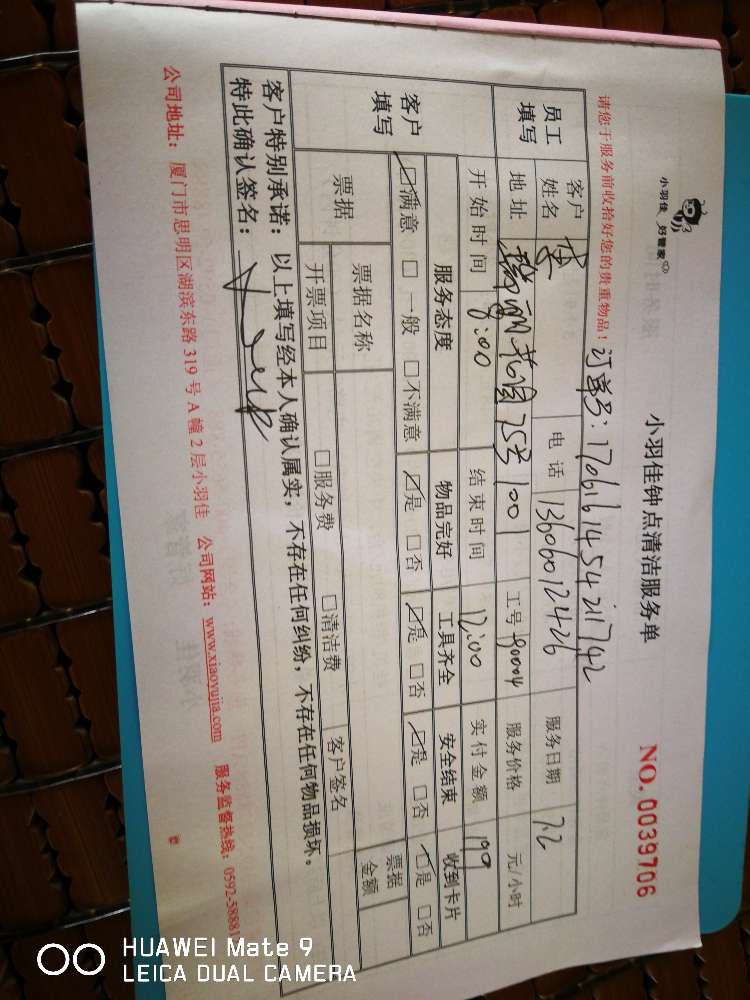 小羽佳 好管家
小羽佳钟点清洁服务单
NO. 0039706
请您于服务前收拾好您的贵重物品！
订单号：1706161454211742
员工填写 客户姓名 李 电话 13606012426 服务日期 7.2
地址 瑞丽花园75号1001 工号 90004 服务价格 元/小时
开始时间 8:00 结束时间 12:00 实付金额 190
客户填写 服务态度 物品完好 工具齐全 安全结束 收到卡片
☑满意 □一般 □不满意 ☑是 □否 ☑是 □否 ☑是 □否 ☑是 □否
票据 票据名称 票据金额
开票项目 □服务费 □清洁费 客户签名
客户特别承诺：以上填写经本人确认属实，不存在任何纠纷，不存在任何物品损坏。
特此确认签名：
公司地址：厦门市思明区湖滨东路319号A幢2层小羽佳 公司网站：www.xiaoyujia.com 服务监督热线：0592-58881
HUAWEI Mate 9
LEICA DUAL CAMERA